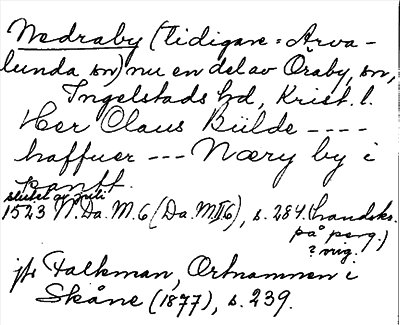 Nedraby (tidigare: Arva-
lunda sn) nu en del av Öraby, sn,
Ingelstads hd, Krist. l.
Her Claus Bülde ----
haffuer --- Næry by i
pantt.
slutet av juli
1523 N.Da.M.6 (Da.M.II6), s. 284. (handskr.
på perg.)
? orig.
jfr Falkman, Ortnamnen i
Skåne (1877), s. 239.